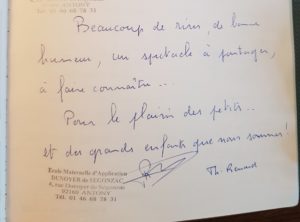 92160 ANTONY
Tél 01 46 68 78 31
Beaucoup de rires, de bonne
humeur, un spectacle à partager,
à faire connaître...
Pour le plaisir des petits...
et des grands enfants que nous sommes!
Ecole Maternelle d'Application
DUNOYER de SEGONZAC
92160 ANTONY
Tél 01 46 68 78 31
Th. Renard